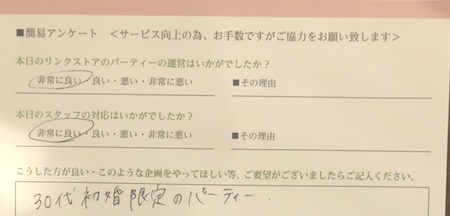 ■簡易アンケート ＜サービス向上の為、お手数ですがご協力をお願い致します＞
本日のリンクストアのパーティーの運営はいかがでしたか？
非常に良い・良い・悪い・非常に悪い ■その理由
本日のスタッフの対応はいかがでしたか？
非常に良い・良い・悪い・非常に悪い ■その理由
こうした方が良い・このような企画をやってほしい等、ご要望がございましたらご記入ください。
30代初婚限定のパーティー.